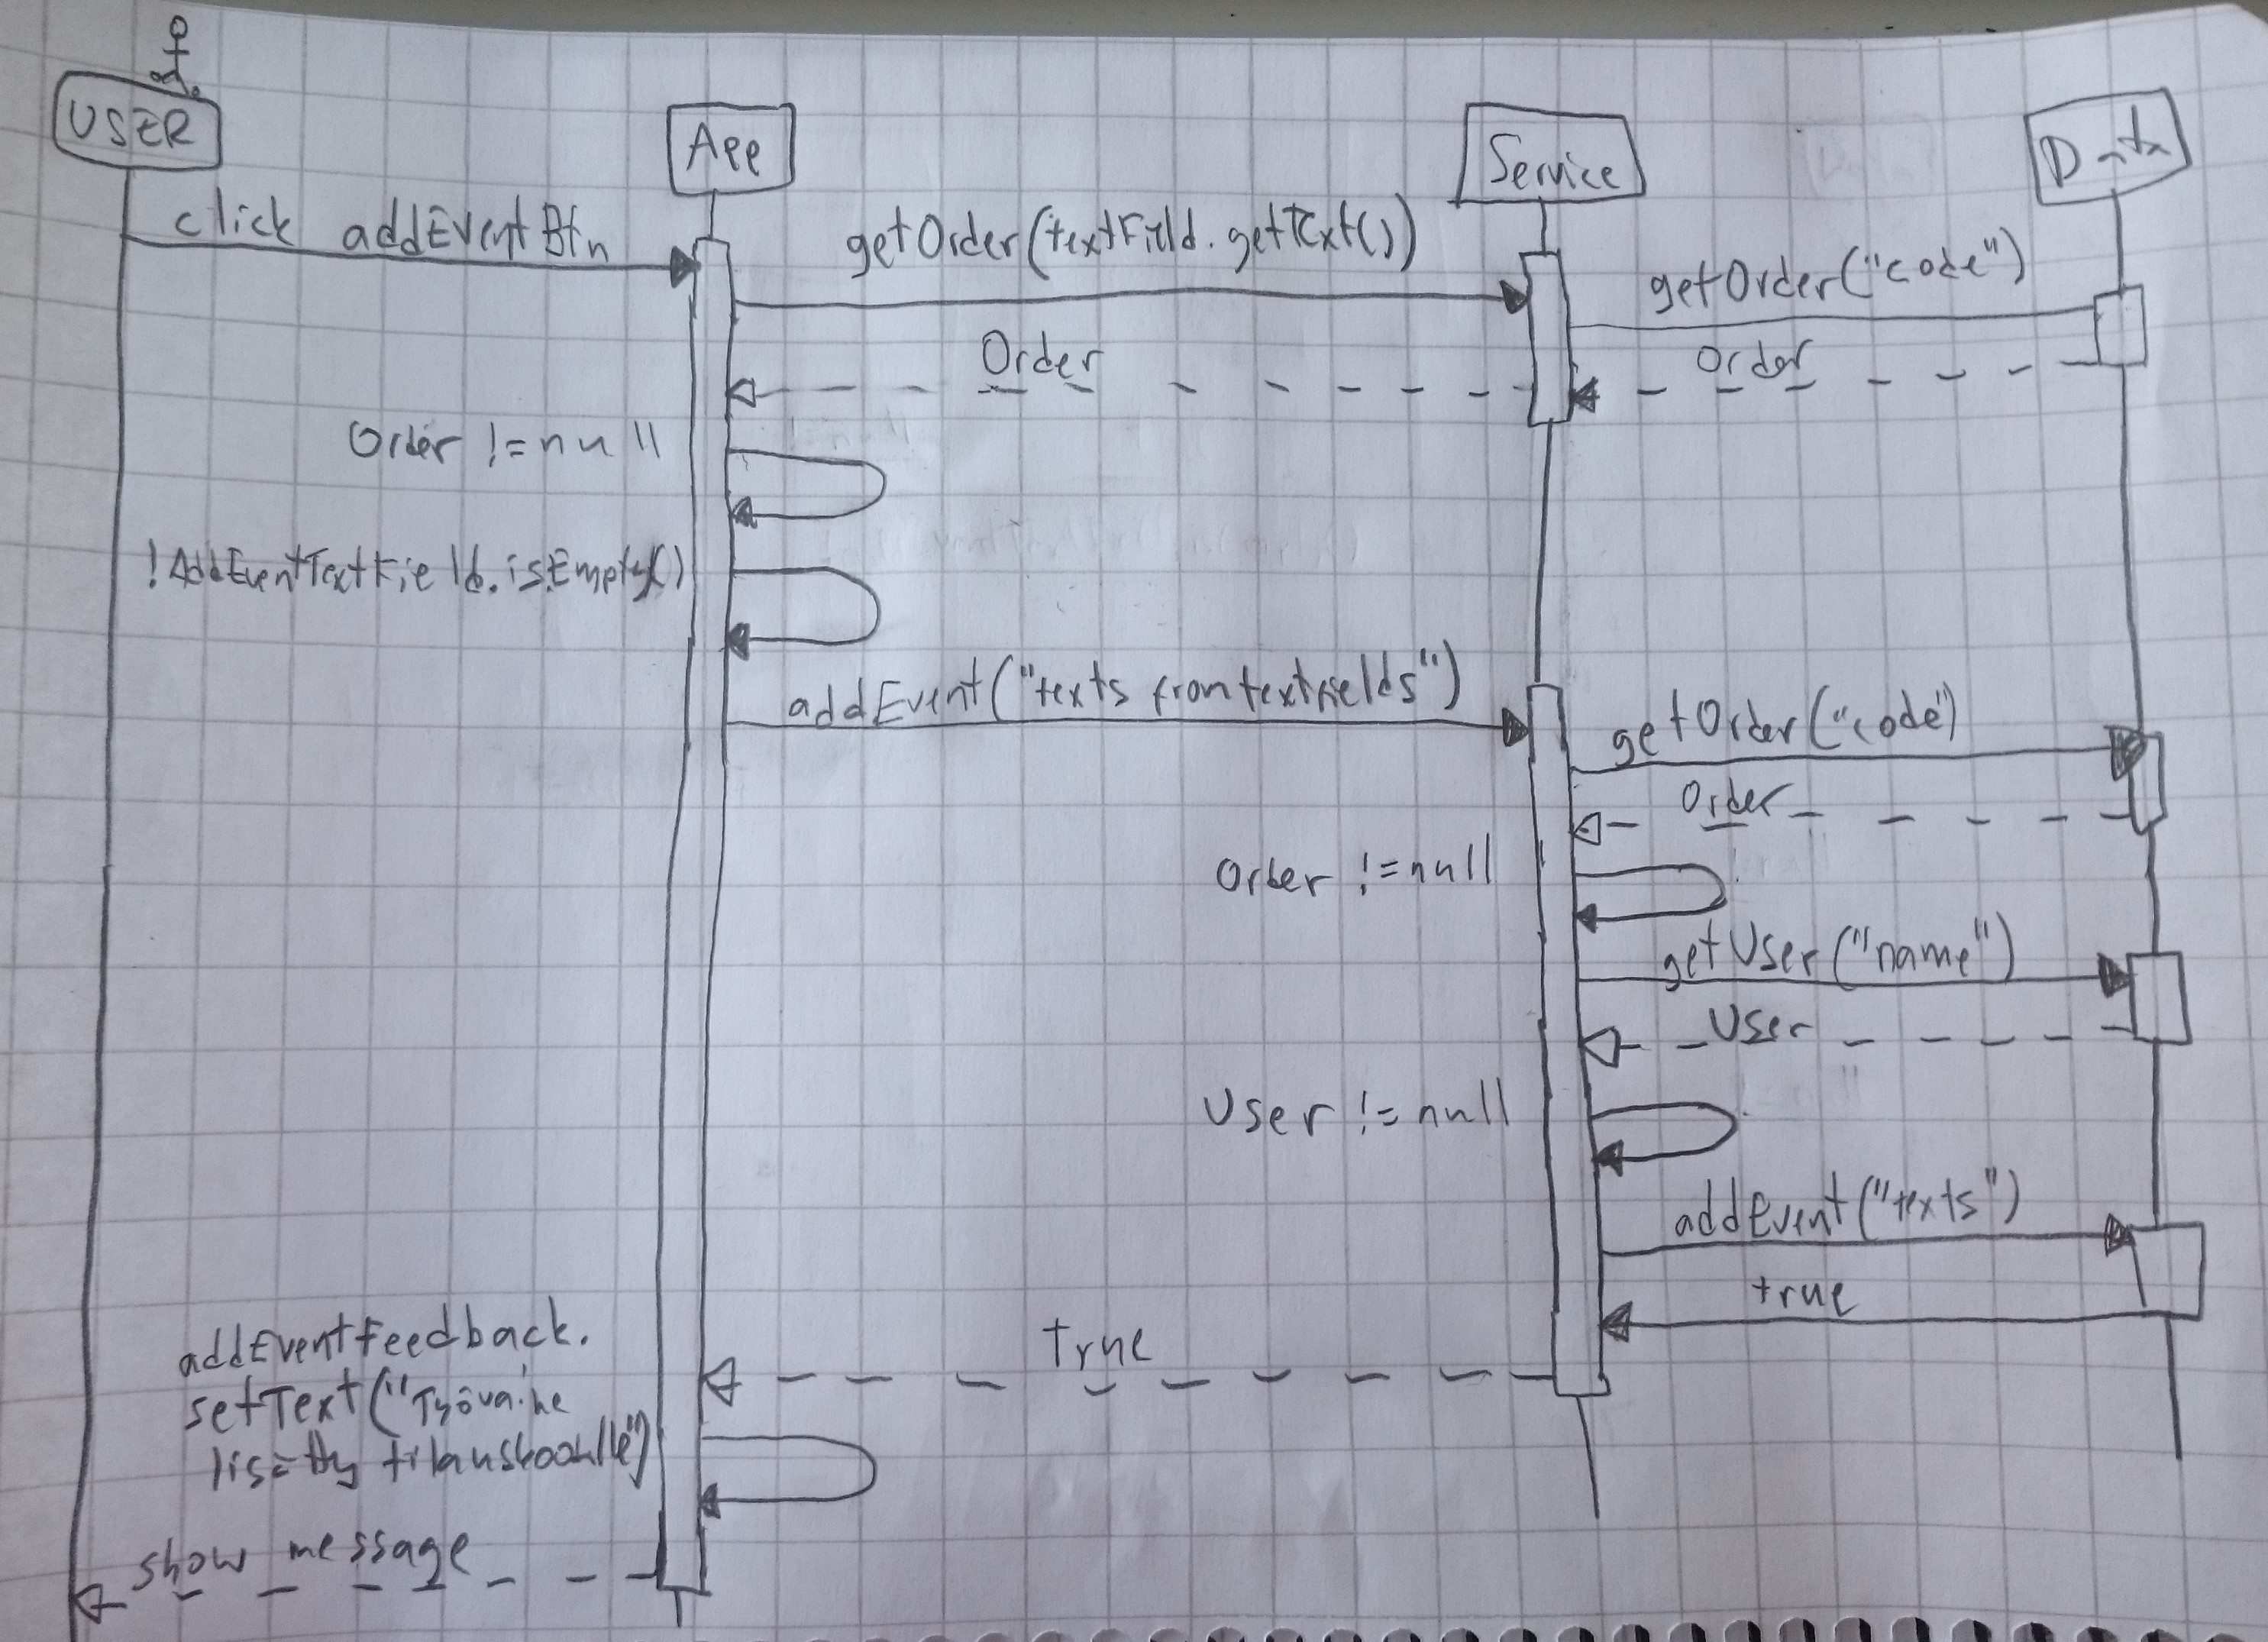 USER
App
Service
Data
click addEventBtn
getOrder(textField.getText())
getOrder("code")
Order
Order
Order != null
!AddEventTextField.isEmpty()
addEvent("texts from textfields")
getOrder("code")
Order
Order != null
getUser("name")
User
User != null
addEvent("texts")
true
True
addEventFeedback.
setText("Työvaihe
lisätty tilaukselle")
show message